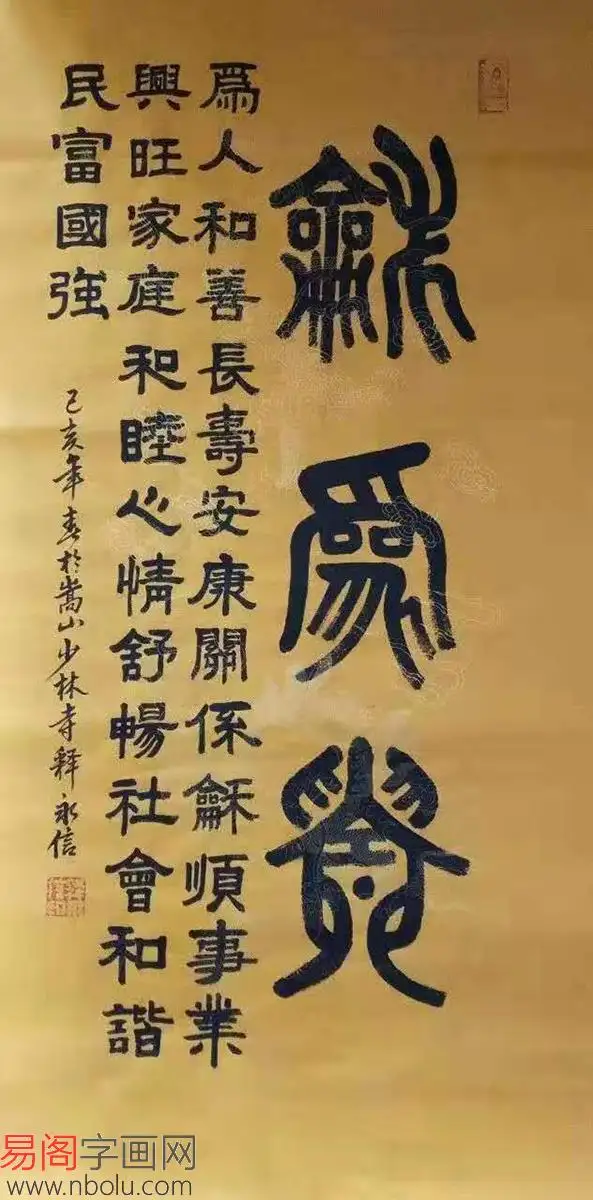 龢為貴
爲人和善長壽安康關係龢順事業
興旺家庭和睦心情舒暢社會和諧
民富國強
己亥年春於嵩山少林寺釋永信
易阁字画网
www.nbolu.com